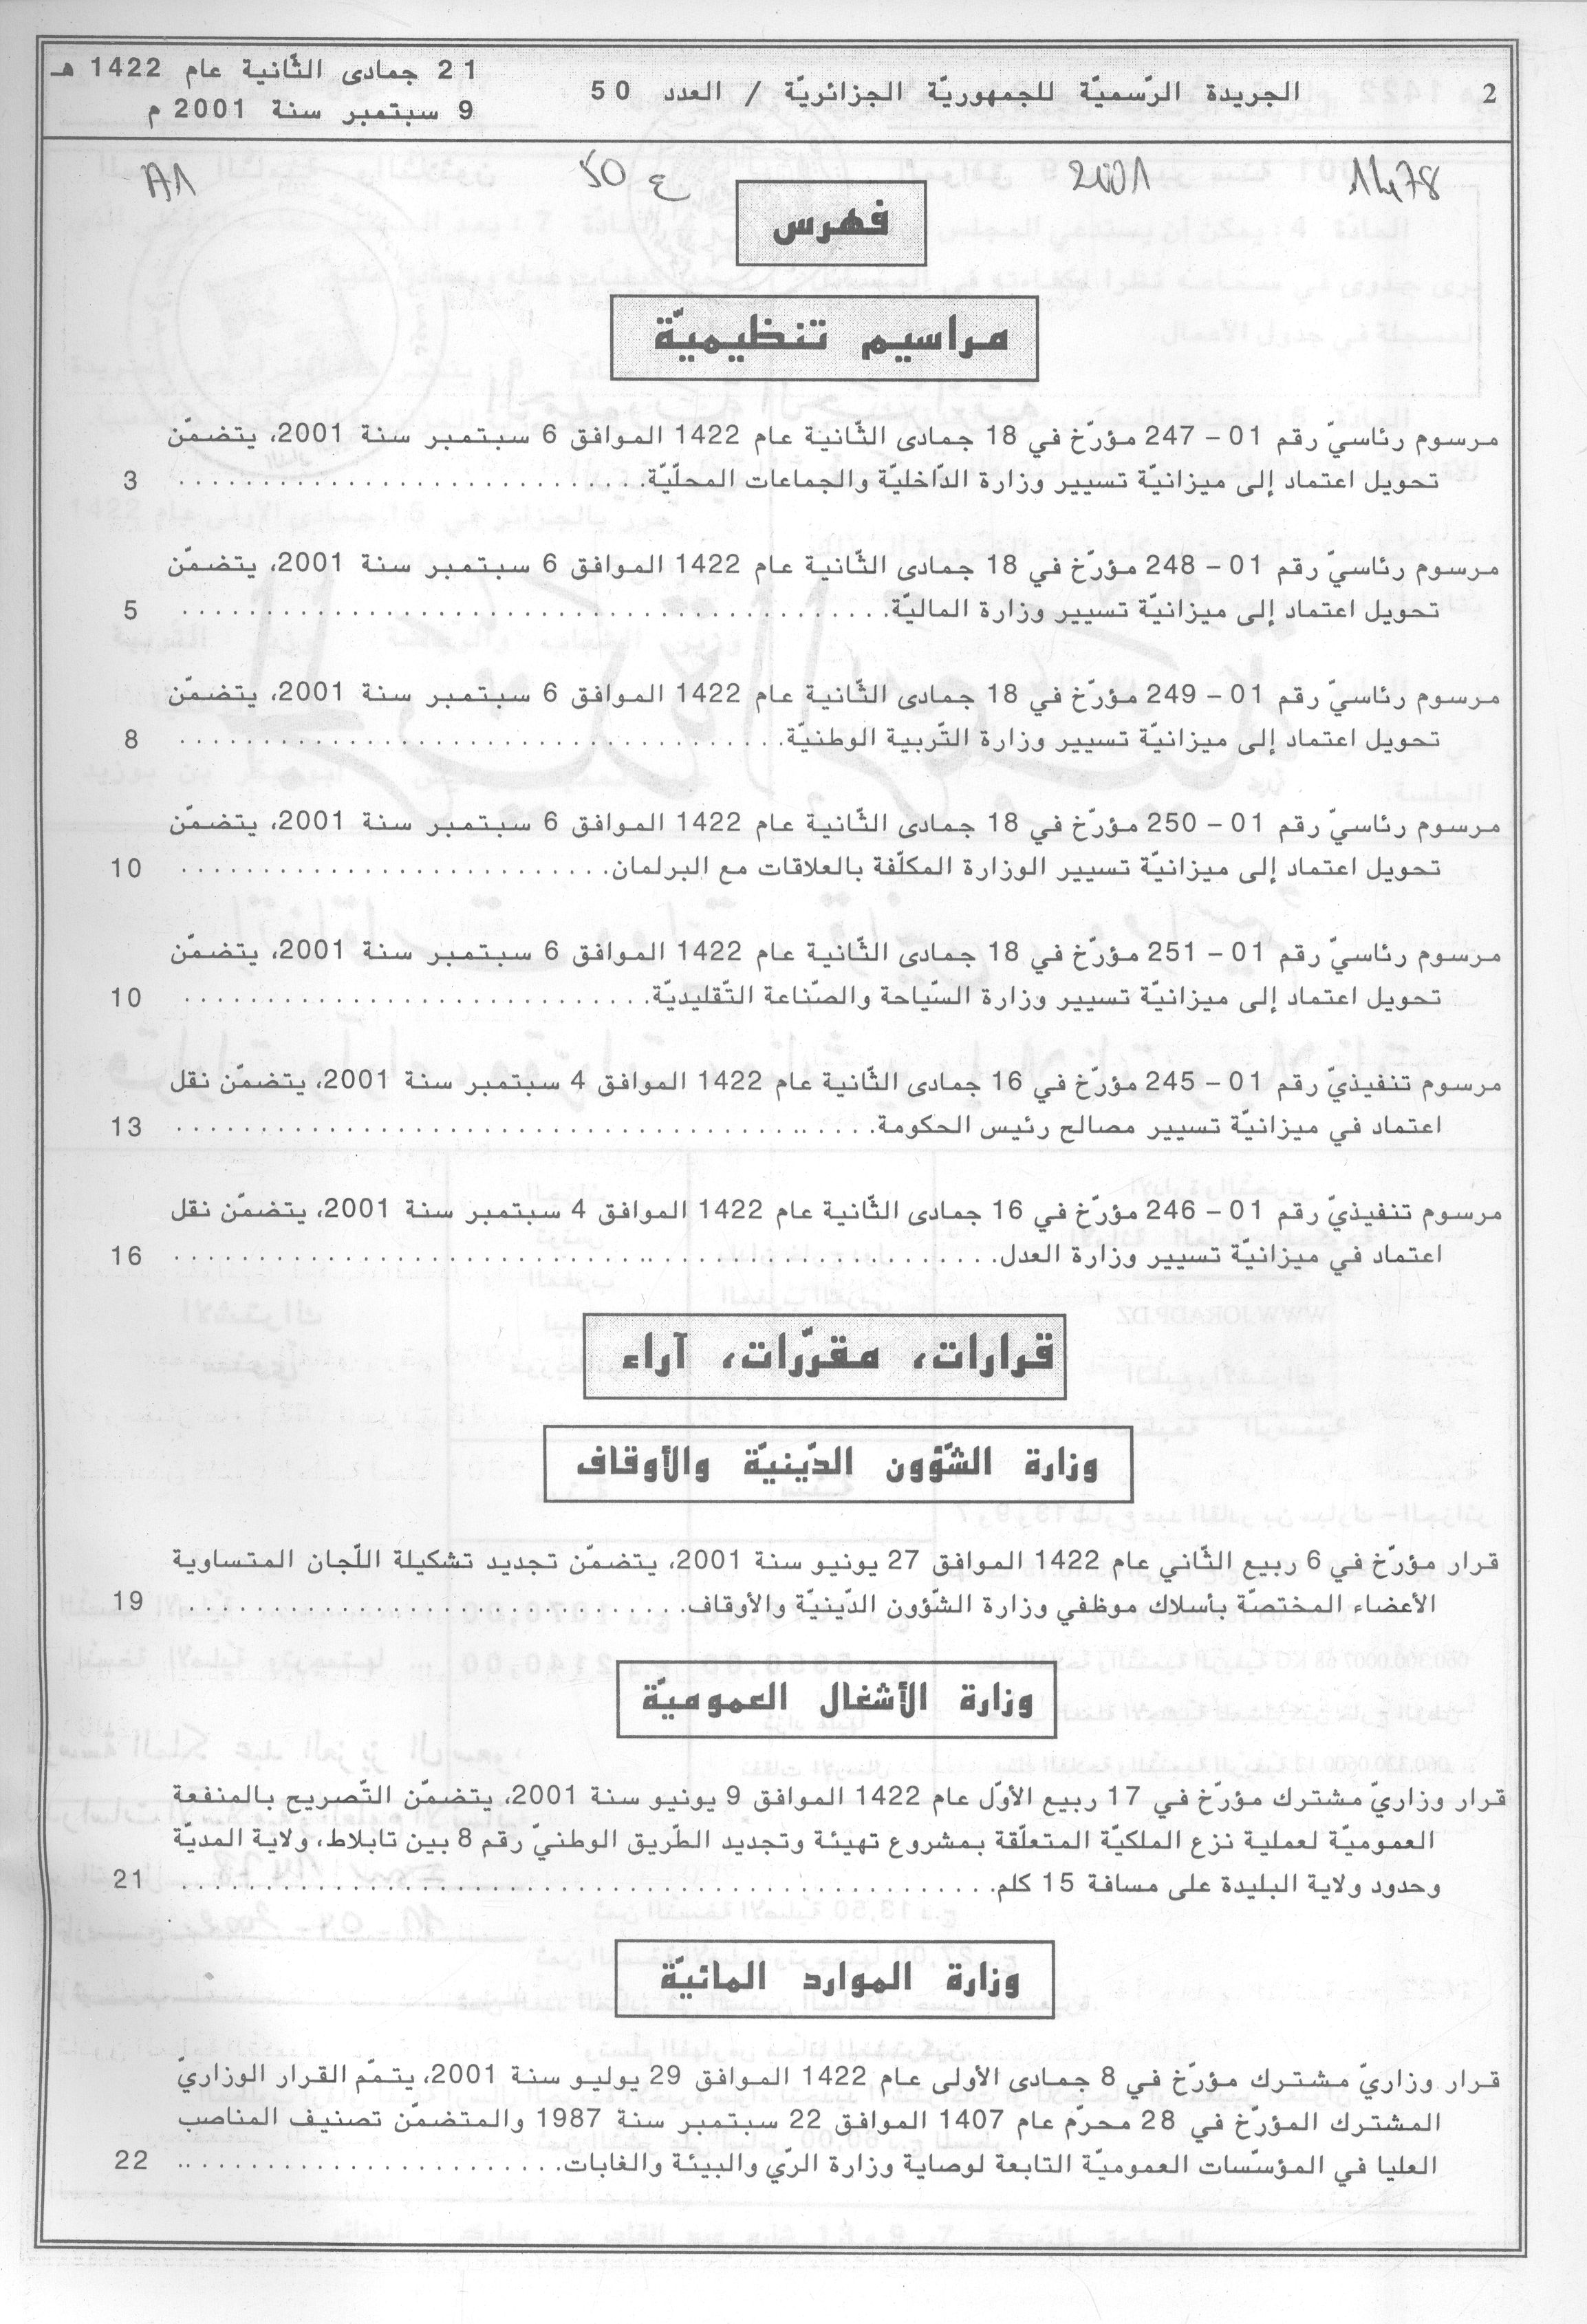 2
الجريدة الرّسميّة للجمهوريّة الجزائريّة / العدد 50
21 جمادى الثّانية عام 1422 هـ
9 سبتمبر سنة 2001 م
1478 2001 ع 50 A1
فهرس
مراسيم تنظيميّة
مرسوم رئاسيّ رقم 01 - 247 مؤرّخ في 18 جمادى الثّانية عام 1422 الموافق 6 سبتمبر سنة 2001، يتضمّن
تحويل اعتماد إلى ميزانيّة تسيير وزارة الدّاخليّة والجماعات المحلّيّة. . . . . . . . . . . . . . . . . . . . 3
مرسوم رئاسيّ رقم 01 - 248 مؤرّخ في 18 جمادى الثّانية عام 1422 الموافق 6 سبتمبر سنة 2001، يتضمّن
تحويل اعتماد إلى ميزانيّة تسيير وزارة الماليّة. . . . . . . . . . . . . . . . . . . . 5
مرسوم رئاسيّ رقم 01 - 249 مؤرّخ في 18 جمادى الثّانية عام 1422 الموافق 6 سبتمبر سنة 2001، يتضمّن
تحويل اعتماد إلى ميزانيّة تسيير وزارة التّربية الوطنيّة. . . . . . . . . . . . . . . . . . . . 8
مرسوم رئاسيّ رقم 01 - 250 مؤرّخ في 18 جمادى الثّانية عام 1422 الموافق 6 سبتمبر سنة 2001، يتضمّن
تحويل اعتماد إلى ميزانيّة تسيير الوزارة المكلّفة بالعلاقات مع البرلمان. . . . . . . . . . . . . . . . . . . . 10
مرسوم رئاسيّ رقم 01 - 251 مؤرّخ في 18 جمادى الثّانية عام 1422 الموافق 6 سبتمبر سنة 2001، يتضمّن
تحويل اعتماد إلى ميزانيّة تسيير وزارة السّياحة والصّناعة التّقليديّة. . . . . . . . . . . . . . . . . . . . 10
مرسوم تنفيذيّ رقم 01 - 245 مؤرّخ في 16 جمادى الثّانية عام 1422 الموافق 4 سبتمبر سنة 2001، يتضمّن نقل
اعتماد في ميزانيّة تسيير مصالح رئيس الحكومة. . . . . . . . . . . . . . . . . . . . 13
مرسوم تنفيذيّ رقم 01 - 246 مؤرّخ في 16 جمادى الثّانية عام 1422 الموافق 4 سبتمبر سنة 2001، يتضمّن نقل
اعتماد في ميزانيّة تسيير وزارة العدل. . . . . . . . . . . . . . . . . . . . 16
قرارات، مقرّرات، آراء
وزارة الشّؤون الدّينيّة والأوقاف
قرار مؤرّخ في 6 ربيع الثّاني عام 1422 الموافق 27 يونيو سنة 2001، يتضمّن تجديد تشكيلة اللّجان المتساوية
الأعضاء المختصّة بأسلاك موظفي وزارة الشّؤون الدّينيّة والأوقاف. . . . . . . . . . . . . . . . . . . . 19
وزارة الأشغال العموميّة
قرار وزاريّ مشترك مؤرّخ في 17 ربيع الأوّل عام 1422 الموافق 9 يونيو سنة 2001، يتضمّن التّصريح بالمنفعة
العموميّة لعملية نزع الملكيّة المتعلّقة بمشروع تهيئة وتجديد الطّريق الوطنيّ رقم 8 بين تابلاط، ولاية المديّة
وحدود ولاية البليدة على مسافة 15 كلم. . . . . . . . . . . . . . . . . . . . 21
وزارة الموارد المائيّة
قرار وزاريّ مشترك مؤرّخ في 8 جمادى الأولى عام 1422 الموافق 29 يوليو سنة 2001، يتمّم القرار الوزاريّ
المشترك المؤرّخ في 28 محرّم عام 1407 الموافق 22 سبتمبر سنة 1987 والمتضمّن تصنيف المناصب
العليا في المؤسّسات العموميّة التابعة لوصاية وزارة الرّي والبيئة والغابات. . . . . . . . . . . . . . . . . . . . 22